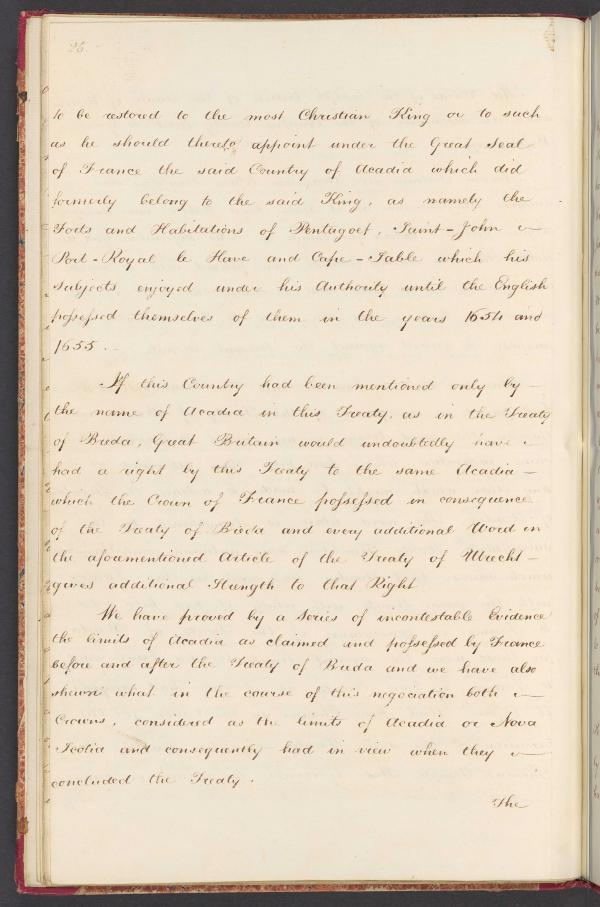 26.
to be restored to the most Christian King or to such
as he should thereto appoint under the Great Seal
of France the said Country of Acadia which did
formerly belong to the said King, as namely the
Forts and Habitations of Pentagoet, Saint-John &
Port-Royal le Have and Cape-Sable which his
subjects enjoyed under his Authority until the English
possessed themselves of them in the years 1654 and
1655.
If this Country had been mentioned only by
the name of Acadia in this Treaty, as in the Treaty
of Breda, Great Britain would undoubtedly have
had a right by this Treaty to the same Acadia
which the Crown of France possessed in consequence
of the Treaty of Breda and every additional Word in
the aforementioned Article of the Treaty of Utrecht
gives additional Strength to that Right
We have proved by a Series of incontestable Evidence
the limits of Acadia as claimed and possessed by France
before and after the Treaty of Breda and we have also
shewn what in the course of this negociation both
Crowns, considered as the limits of Acadia or Nova
Scotia and consequently had in view when they
concluded the Treaty.
The